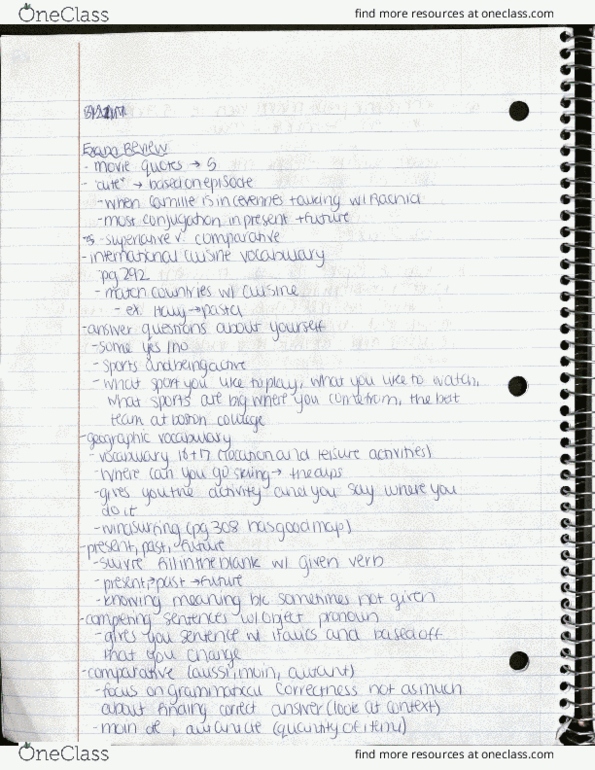 OneClass
find more resources at oneclass.com
Exam Review
- movie quotes → 5
- "cute" → based on episode
- when Camille is in cevennes talking w/ Rachid
- most conjugation in present + future
5 - superlative v. comparative
- international cuisine vocabulary
pg 292
- match countries w/ cuisine
- ex. Italy → pasta
- answer questions about yourself
- some yes/no
- sports and being active
- what sport you like to play, what you like to watch,
what sports are big where you come from, the best
team at boston college
- geographic vocabulary
- vocabulary 16+17 (location and leisure activities)
- where can you go skiing → the alps
- gives you the activity and you say where you
do it
- windsurfing (pg 308 has good map)
- present, past, future
- suivre fill in the blank w/ given verb
- present → past → future
- knowing meaning b/c sometimes not given
- competing sentences w/ object pronoun
- gives you sentence w/ italics and based off
that you change
- comparative (aussi, moin, autant)
- focus on grammatical correctness not as much
about finding correct answer (look at context)
- moin de, autant de (quantity of item)
OneClass
find more resources at oneclass.com